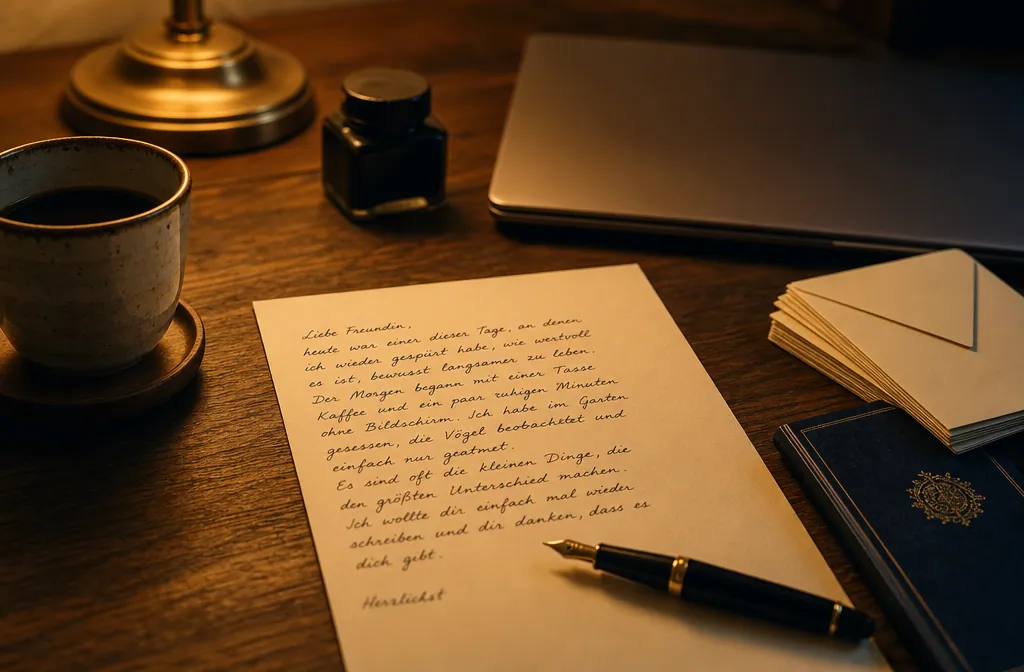 Liebe Freundin,
heute war einer dieser Tage, an denen
ich wieder gespürt habe, wie wertvoll
es ist, bewusst langsamer zu leben.
Der Morgen begann mit einer Tasse
Kaffee und ein paar ruhigen Minuten
ohne Bildschirm. Ich habe im Garten
gesessen, die Vögel beobachtet und
einfach nur geatmet.
Es sind oft die kleinen Dinge, die
den größten Unterschied machen.
Ich wollte dir einfach mal wieder
schreiben und dir danken, dass es
dich gibt.
Herzlichst